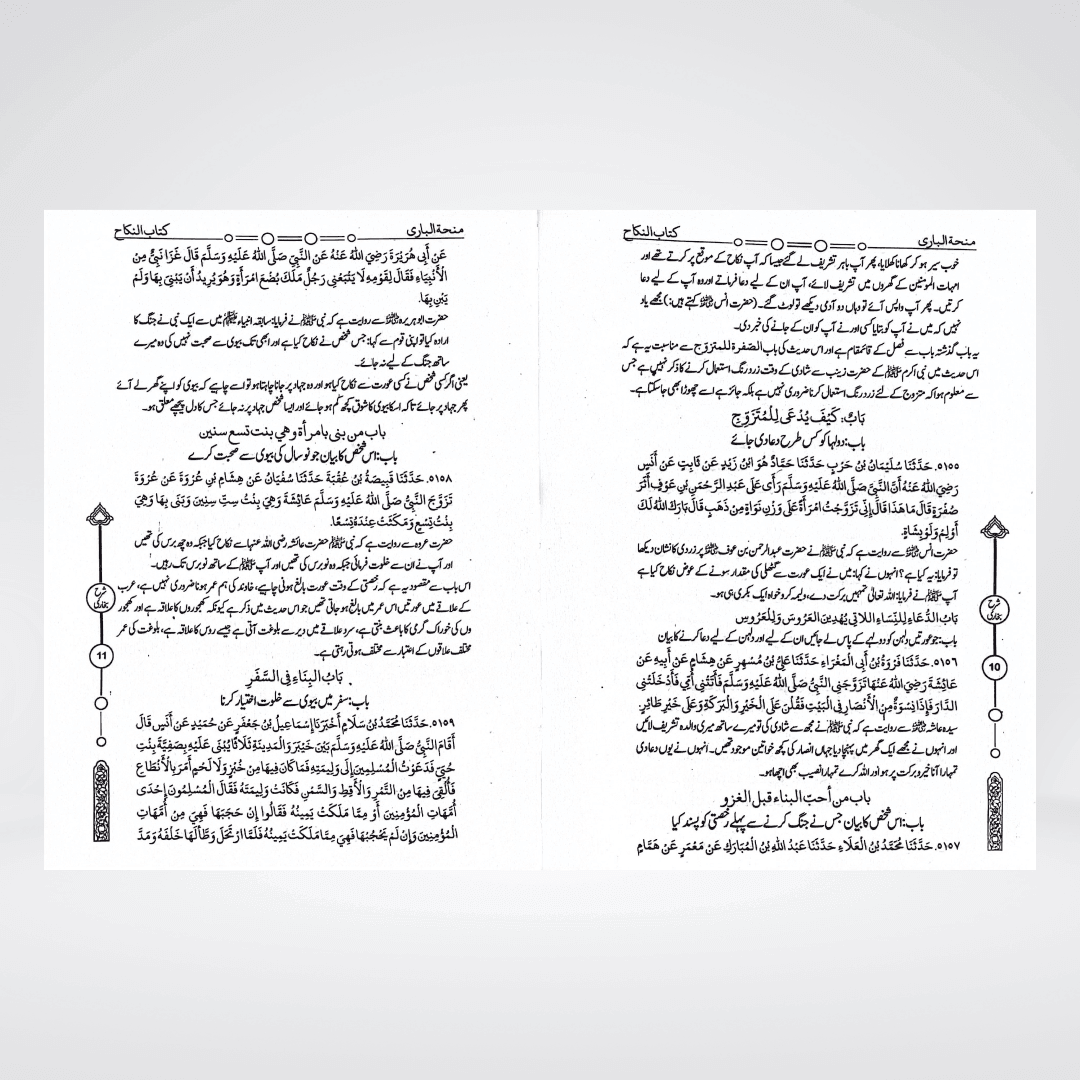 منحة الباری
کتاب النکاح
خوب سیر ہو کر کھانا کھلایا، پھر آپ باہر تشریف لے گئے جیسا کہ آپ نکاح کے موقع پر کرتے تھے اور
امہات المؤمنین کے گھروں میں تشریف لائے، آپ ان کے لیے دعا فرماتے اور وہ آپ کے لیے دعا
کرتیں۔ پھر آپ واپس آئے تو وہاں دو آدمی دیکھے تو لوٹ گئے۔ (حضرت انس ؓ کہتے ہیں:) مجھے یاد
نہیں کہ میں نے آپ کو بتایا کسی اور نے آپ کو ان کے جانے کی خبر دی۔
یہ باب گذشتہ باب سے فصل کے قائمقام ہے اور اس حدیث کی باب الصفرة للمتزوّج سے مناسبت یہ ہے کہ
اس حدیث میں نبی اکرم ﷺ کے حضرت زینب سے شادی کے وقت زرد رنگ استعمال کرنے کا ذکر نہیں ہے جس
سے معلوم ہوا کہ متزوج کے لئے زرد رنگ استعمال کرنا ضروری نہیں ہے بلکہ جائز ہے اسے چھوڑا بھی جا سکتا ہے۔
بَابٌ: كَيْفَ يُدْعَى لِلْمُتَزَوِّجِ
باب: دولہا کو کس طرح دعا دی جائے
۵۱۵۵۔ حَدَّثَنَا سُلَيْمَانُ بْنُ حَرْبٍ حَدَّثَنَا حَمَّادٌ هُوَ ابْنُ زَيْدٍ عَنْ ثَابِتٍ عَنْ أَنَسٍ
رَضِيَ اللهُ عَنْهُ أَنَّ النَّبِيَّ صَلَّى اللهُ عَلَيْهِ وَسَلَّمَ رَأَى عَلَى عَبْدِ الرَّحْمَنِ بْنِ عَوْفٍ أَثَرَ
صُفْرَةٍ قَالَ مَا هَذَا قَالَ إِنِّي تَزَوَّجْتُ امْرَأَةً عَلَى وَزْنِ نَوَاةٍ مِنْ ذَهَبٍ قَالَ بَارَكَ اللهُ لَكَ
أَوْلِمْ وَلَوْ بِشَاةٍ.
حضرت انس ؓ سے روایت ہے کہ نبی ﷺ نے حضرت عبدالرحمن بن عوف ؓ پر زردی کا نشان دیکھا
تو فرمایا: یہ کیا ہے؟ انہوں نے کہا: میں نے ایک عورت سے گٹھلی کی مقدار سونے کے عوض نکاح کیا ہے
آپ ﷺ نے فرمایا: اللہ تعالیٰ تمہیں برکت دے، ولیمہ کرو خواہ ایک بکری ہی ہو۔
بَابُ الدُّعَاءِ لِلنِّسَاءِ اللاَّتِي يَهْدِينَ العَرُوسَ وَلِلْعَرُوسِ
باب: جو عورتیں دلہن کو دولہے کے پاس لے جائیں ان کے لیے اور دلہن کے لیے دعا کرنے کا بیان
۵۱۵۶۔ حَدَّثَنَا فَرْوَةُ بْنُ أَبِي المَغْرَاءِ حَدَّثَنَا عَلِيُّ بْنُ مُسْهِرٍ عَنْ هِشَامٍ عَنْ أَبِيهِ عَنْ
عَائِشَةَ رَضِيَ اللهُ عَنْهَا تَزَوَّجَنِي النَّبِيُّ صَلَّى اللهُ عَلَيْهِ وَسَلَّمَ فَأَتَتْنِي أُمِّي فَأَدْخَلَتْنِي
الدَّارَ فَإِذَا نِسْوَةٌ مِنَ الأَنْصَارِ فِي البَيْتِ فَقُلْنَ عَلَى الْخَيْرِ وَالْبَرَكَةِ وَعَلَى خَيْرِ طَائِرٍ.
سیدہ عائشہ ؓ سے روایت ہے کہ نبی ﷺ نے مجھ سے شادی کی تو میرے ساتھ میری والدہ تشریف لائیں
اور انہوں نے مجھے ایک گھر میں پہنچا دیا جہاں انصار کی کچھ خواتین موجود تھیں۔ انہوں نے یوں دعا دی
تمہارا آنا خیر و برکت پر ہو اور اللہ کرے تمہارا نصیب بھی اچھا ہو۔
باب من أحبّ البناء قبل الغزو
باب: اس شخص کا بیان جس نے جنگ کرنے سے پہلے رخصتی کو پسند کیا
۵۱۵۷۔ حَدَّثَنَا مُحَمَّدُ بْنُ الْعَلَاءِ حَدَّثَنَا عَبْدُ اللهِ بْنُ الْمُبَارَكِ عَنْ مَعْمَرٍ عَنْ هَمَّامٍ
شرح بخاری
10
منحة الباری
کتاب النکاح
عَنْ أَبِي هُرَيْرَةَ رَضِيَ اللهُ عَنْهُ عَنِ النَّبِيِّ صَلَّى اللهُ عَلَيْهِ وَسَلَّمَ قَالَ غَزَا نَبِيٌّ مِنَ
الْأَنْبِيَاءِ فَقَالَ لِقَوْمِهِ لَا يَتْبَعْنِي رَجُلٌ مَلَكَ بُضْعَ امْرَأَةٍ وَهُوَ يُرِيدُ أَنْ يَبْنِيَ بِهَا وَلَمْ
يَبْنِ بِهَا.
حضرت ابوہریرہ ؓ سے روایت ہے کہ نبی ﷺ نے فرمایا: سابقہ انبیاء میں سے ایک نبی نے جنگ کا
ارادہ کیا تو اپنی قوم سے کہا: جس شخص نے نکاح کیا ہے اور ابھی تک بیوی سے صحبت نہیں کی وہ میرے
ساتھ جنگ کے لیے نہ جائے۔
یعنی اگر کسی شخص نے کسی عورت سے نکاح کیا ہو اور وہ جہاد پر جانا چاہتا ہو تو اسے چاہیے کہ بیوی کو اپنے گھر لے آئے
پھر جہاد پر جائے تاکہ اسکا بیوی کا شوق کچھ کم ہو جائے اور ایسا شخص جہاد پر نہ جائے جس کا دل پیچھے معلق ہو۔
باب من بنى بامرأة وهي بنت تسع سنين
باب: اس شخص کا بیان جو نو سال کی بیوی سے صحبت کرے
۵۱۵۸۔ حَدَّثَنَا قَبِيصَةُ بْنُ عُقْبَةَ حَدَّثَنَا سُفْيَانُ عَنْ هِشَامِ بْنِ عُرْوَةَ عَنْ عُرْوَةَ
تَزَوَّجَ النَّبِيُّ صَلَّى اللهُ عَلَيْهِ وَسَلَّمَ عَائِشَةَ وَهِيَ بِنْتُ سِتِّ سِنِينَ وَبَنَى بِهَا وَهِيَ
بِنْتُ تِسْعٍ وَمَكَثَتْ عِنْدَهُ تِسْعًا.
حضرت عروہ سے روایت ہے کہ نبی ﷺ حضرت عائشہ رضی اللہ عنہا سے نکاح کیا جبکہ وہ چھ برس کی تھیں
اور آپ نے ان سے خلوت فرمائی جبکہ وہ نو برس کی تھیں اور آپ ﷺ کے ساتھ نو برس تک رہیں۔
اس باب سے مقصود یہ ہے کہ رخصتی کے وقت عورت بالغ ہونی چاہیے، خاوند کی ہم عمر ہونا ضروری نہیں ہے، عرب
کے علاقے میں عورتیں اس عمر میں بالغ ہو جاتی تھیں جو اس حدیث میں ذکر ہے کیونکہ کھجوروں کا علاقہ ہے اور کھجور
وں کی خوراک گرمی کا باعث بنتی ہے، سرد علاقے میں دیر سے بلوغت آتی ہے جیسے روس کا علاقہ ہے، بلوغت کی عمر
مختلف علاقوں کے اعتبار سے مختلف ہوتی رہتی ہے۔
بَابُ البِنَاءِ فِي السَّفَرِ
باب: سفر میں بیوی سے خلوت اختیار کرنا
۵۱۵۹۔ حَدَّثَنَا مُحَمَّدُ بْنُ سَلَامٍ أَخْبَرَنَا إِسْمَاعِيلُ بْنُ جَعْفَرٍ عَنْ حُمَيْدٍ عَنْ أَنَسٍ قَالَ
أَقَامَ النَّبِيُّ صَلَّى اللهُ عَلَيْهِ وَسَلَّمَ بَيْنَ خَيْبَرَ وَالْمَدِينَةِ ثَلَاثًا يُبْنَى عَلَيْهِ بِصَفِيَّةَ بِنْتِ
حُيَيٍّ فَدَعَوْتُ الْمُسْلِمِينَ إِلَى وَلِيمَتِهِ فَمَا كَانَ فِيهَا مِنْ خُبْزٍ وَلَا لَحْمٍ أَمَرَ بِالْأَنْطَاعِ
فَأُلْقِيَ فِيهَا مِنَ التَّمْرِ وَالْأَقِطِ وَالسَّمْنِ فَكَانَتْ وَلِيمَتَهُ فَقَالَ الْمُسْلِمُونَ إِحْدَى
أُمَّهَاتِ الْمُؤْمِنِينَ أَوْ مِمَّا مَلَكَتْ يَمِينُهُ فَقَالُوا إِنْ حَجَبَهَا فَهِيَ مِنْ أُمَّهَاتِ
الْمُؤْمِنِينَ وَإِنْ لَمْ يَحْجُبْهَا فَهِيَ مِمَّا مَلَكَتْ يَمِينُهُ فَلَمَّا ارْتَحَلَ وَطَّأَ لَهَا خَلْفَهُ وَمَدَّ
شرح بخاری
11